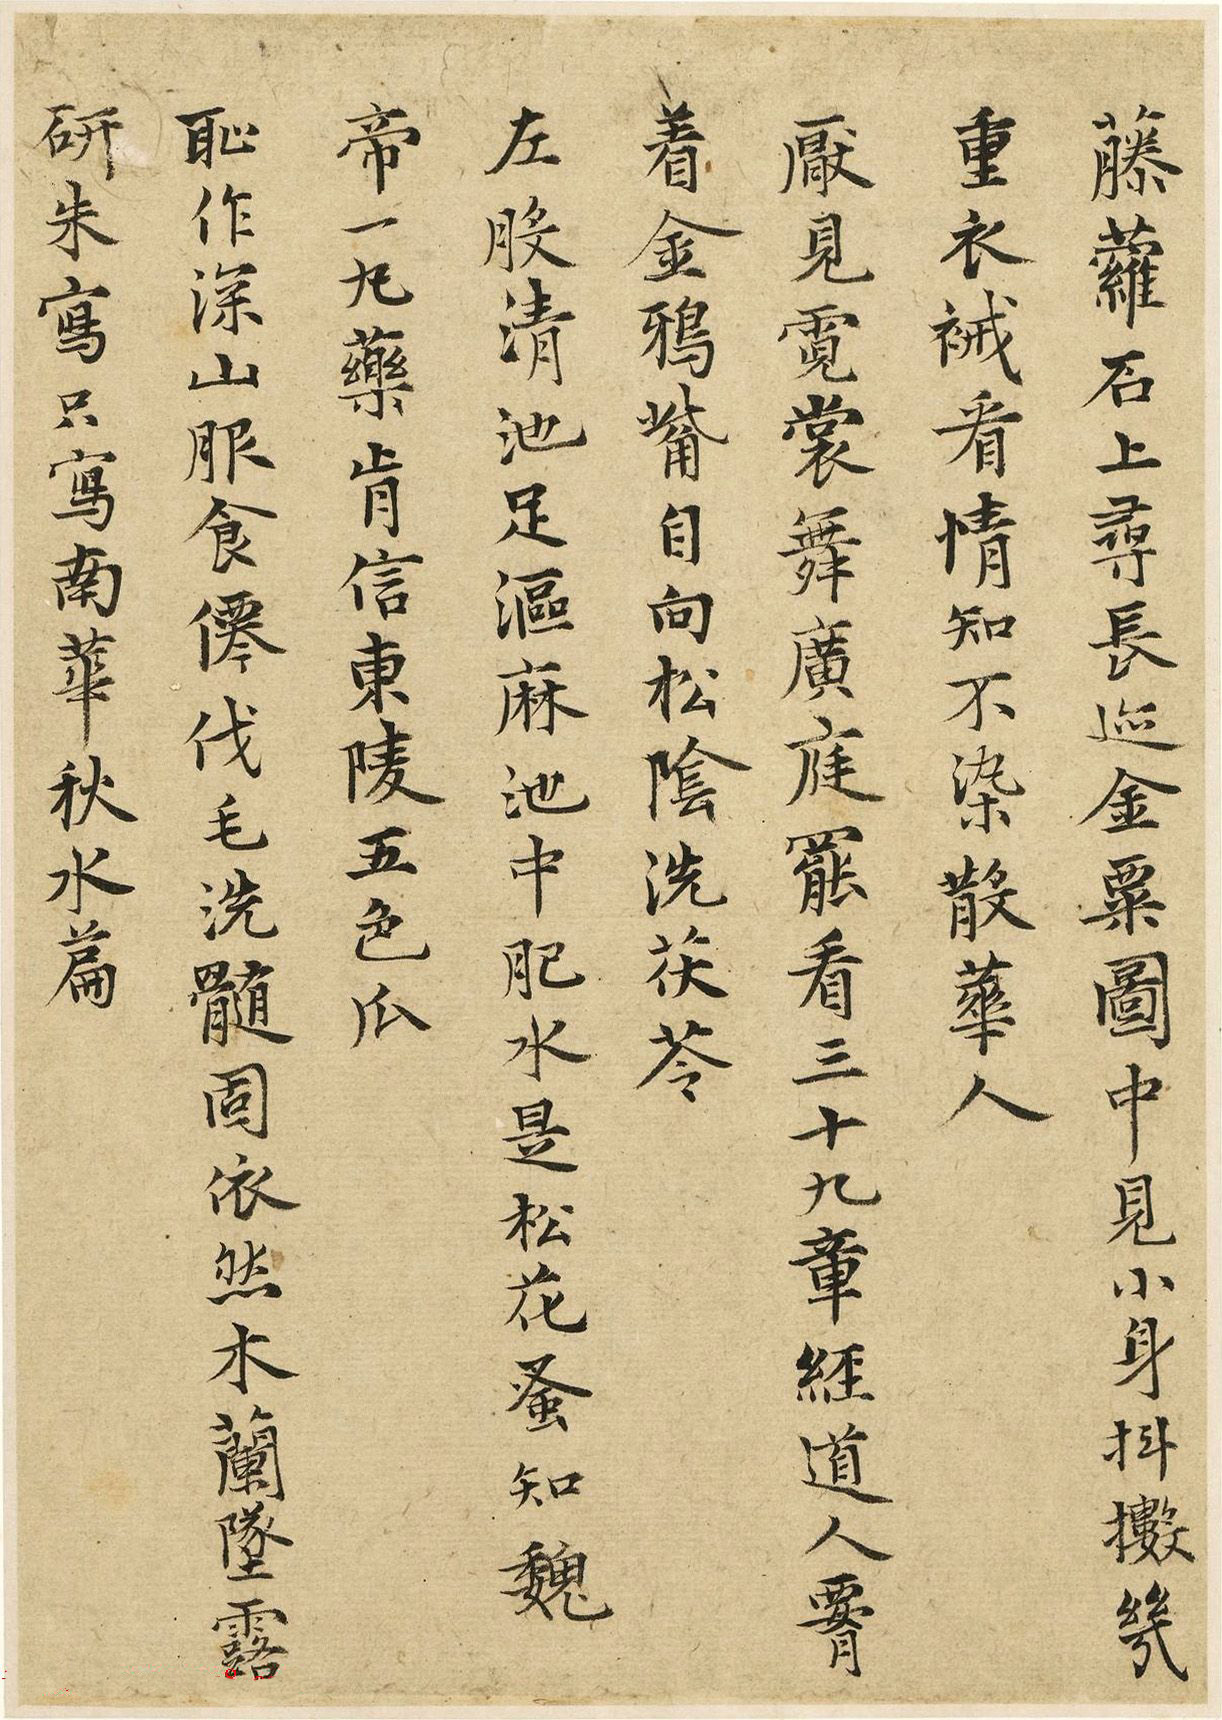 藤蘿石上尋長巡金粟圖中見小身抖擻幾
重衣祴看情知不染散華人
厭見霓裳舞廣庭罷看三十九章經道人𦝫
着金鴉觜自向松陰洗茯苓
左股清池足漚麻池中肥水是松花蚤知魏
帝一丸藥肯信東陵五色瓜
恥作深山服食僊伐毛洗髓固依然木蘭墜露
研朱寫只寫南華秋水篇